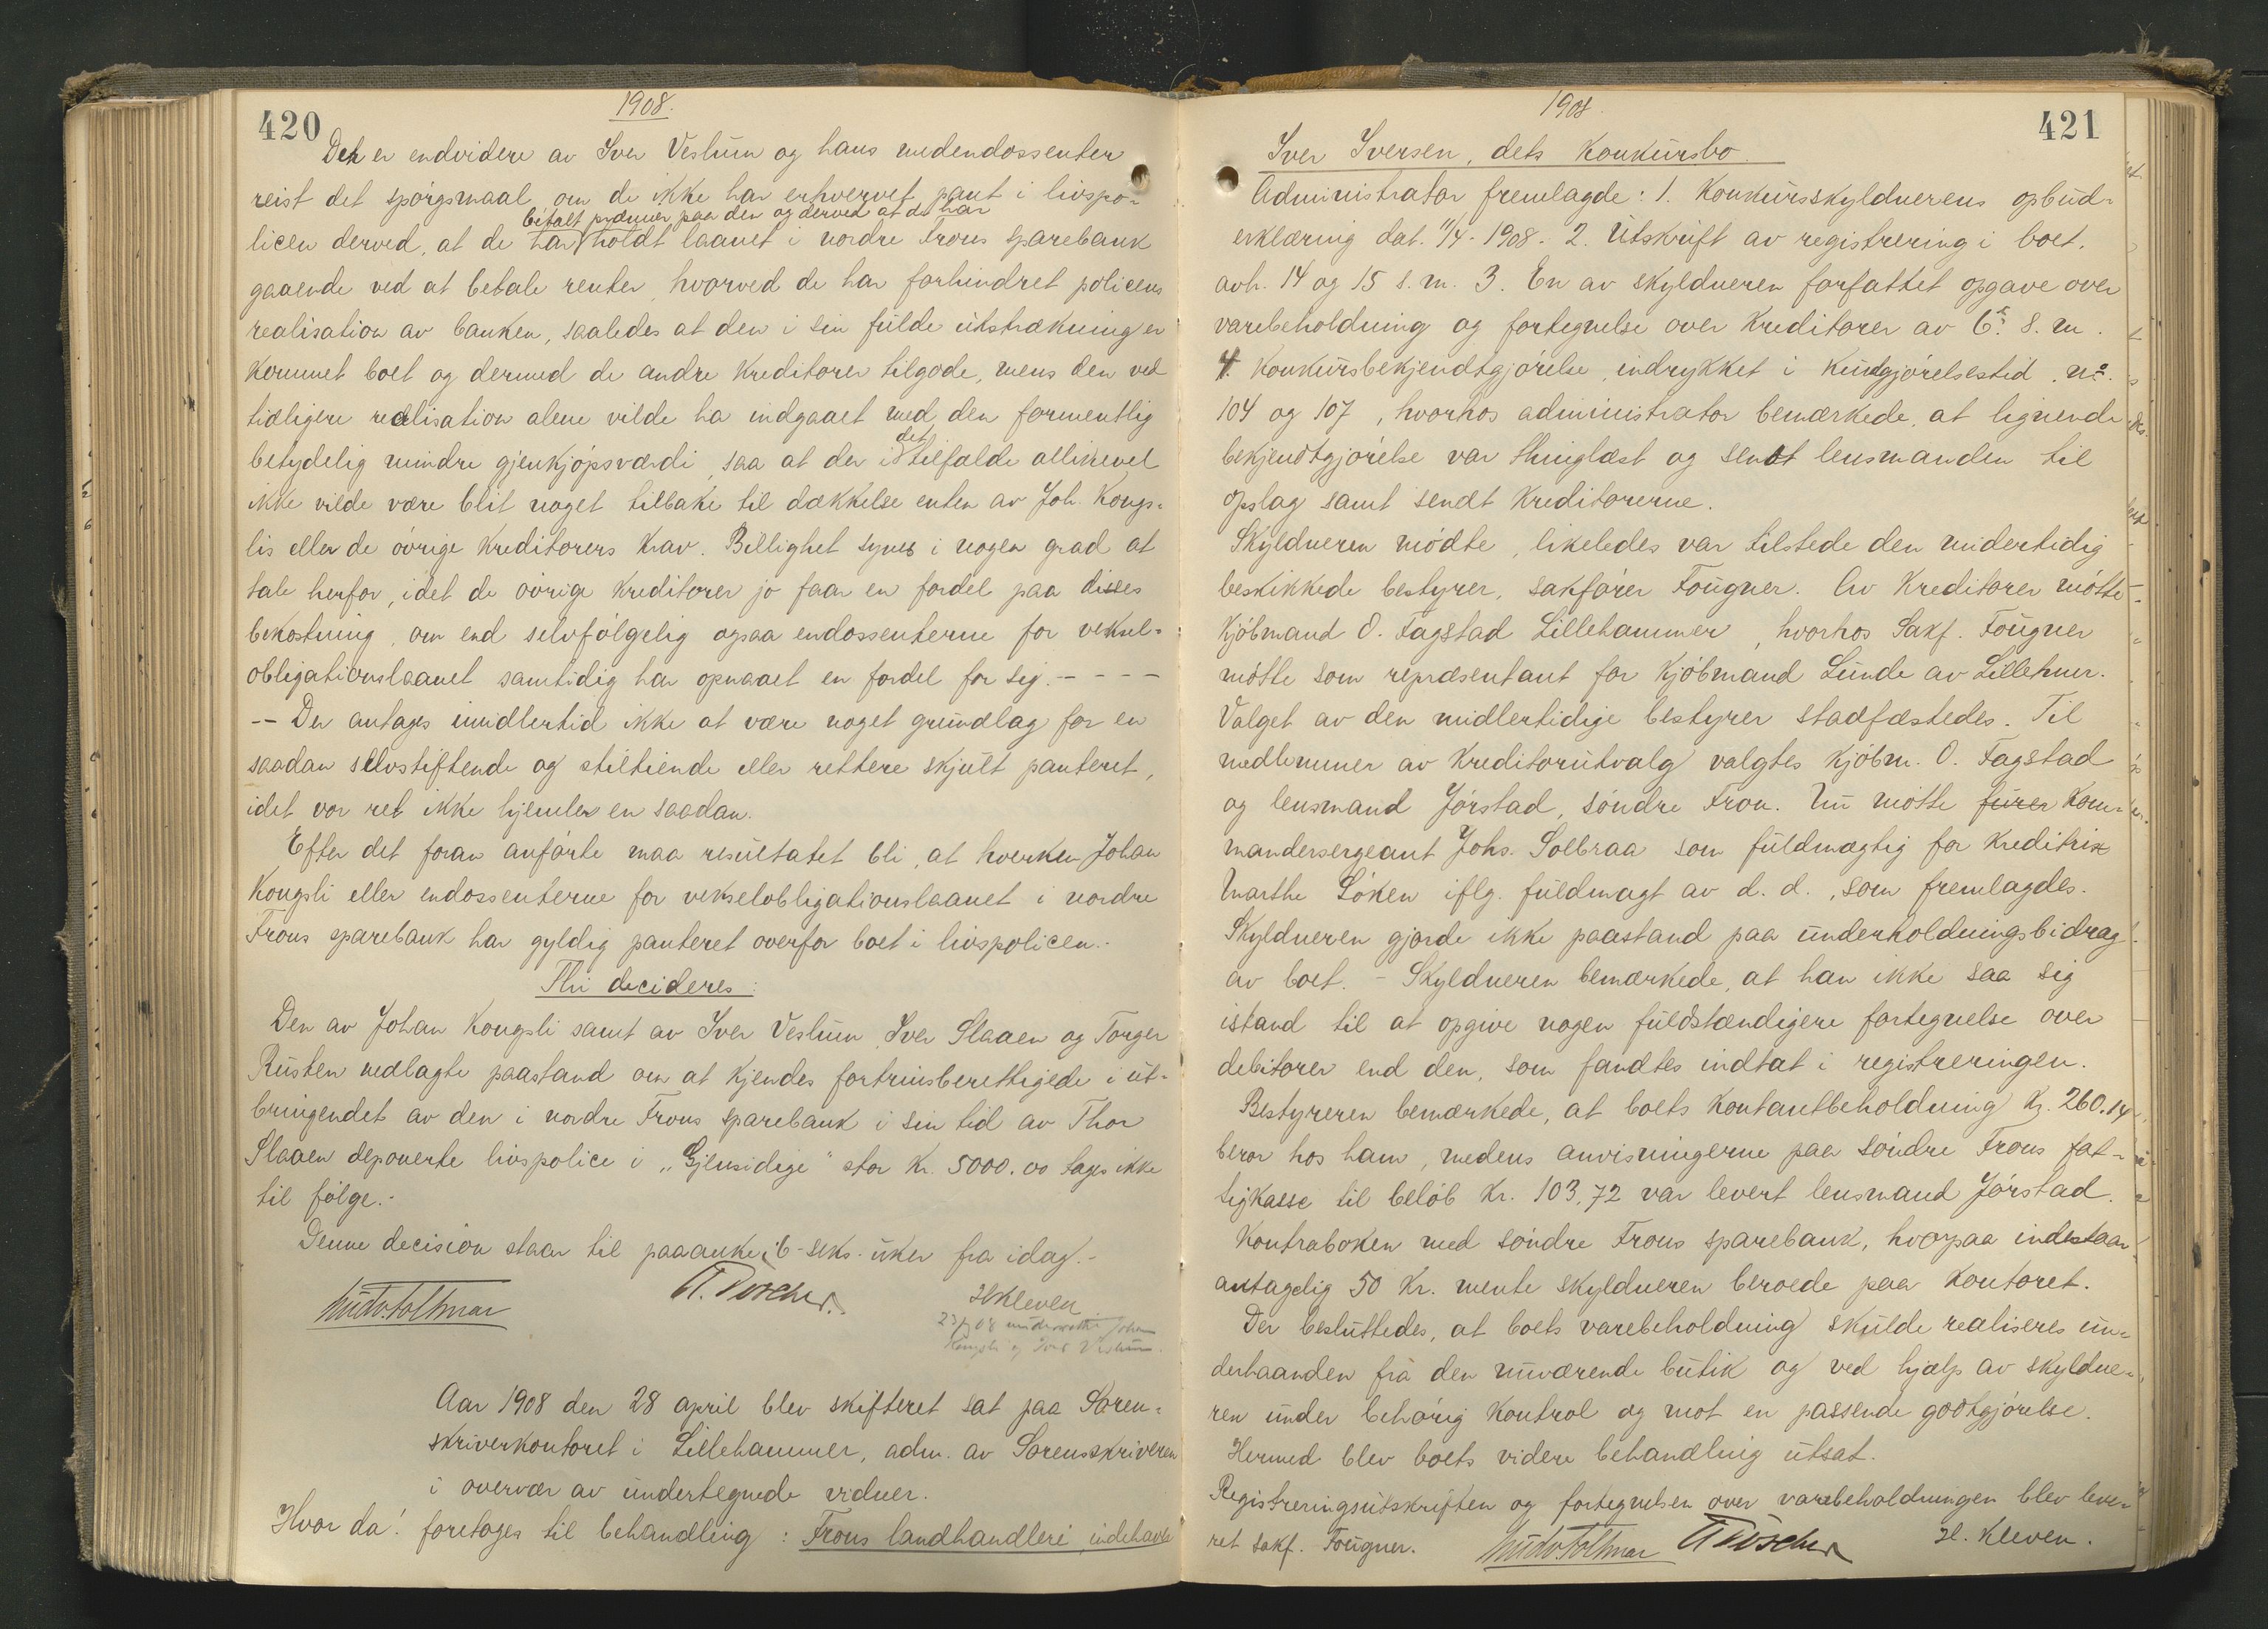 420
1908.
Det er endvidere av Iver Veslum og hans medendossenter
reist det spørgsmaal, om de ikke har erhvervet pant i livspo-
betalt præmier paa den og derved at de har
licen derved, at de har holdt laanet i nordre Frons sparebank
gaaende ved at betale renter, hvorved de har forhindret policens
realisation av banken, saaledes at den i sin fulde utstrækning er
kommet boet og dermed de andre kreditorer tilgode, mens den ved
tidligere realisation alene vilde ha indgaaet med den formentlig
betydelig mindre gjenkjøpsværdi, saa at der i det tilfælde allikevel
ikke vilde være blit noget tilbake til dækkelse enten av Joh. Kongs-
lis eller de øvrige kreditorers krav. Billighet synes i nogen grad at
tale herfor, idet de øvrige kreditorer jo faar en fordel paa disses
bekostning, om end selvfølgelig ogsaa endossenterne for veksel-
obligationslaanet samtidig har opnaaet en fordel for sig. - - - -
-- Der antages imidlertid ikke at være noget grundlag for en
saadan selvstiftende og stiltiende eller rettere skjult panteret,
idet vor ret ikke hjemler en saadan.
Efter det foran anførte maa resultatet bli, at hverken Johan
Kongsli eller endossenterne for vekselobligationslaanet i nordre
Frons sparebank har gyldig panteret overfor boet i livspolicen.-
Thi decideres:
Den av Johan Kongsli samt av Iver Veslum, Iver Slaaen og Torger
Rusten nedlagte paastand om at kjendes fortrinsberettigede i ut-
bringendet av den i nordre Frons sparebank i sin tid av Thor
Slaaen deponerte livspolice i "Gjensidige" stor Kr. 5000.00 tages ikke
til følge.-
Denne decision staar til paaanke i 6-seks-uker fra idag.-
H. Kleven
23/ 08 Johan
Kongsli og Iver Veslum.
Aar 1908 den 28 april blev skifteret sat paa Soren-
skriverkontoret i Lillehammer, adm. av Sorenskriveren
i overvær av undertegnede vidner.
Hvor da! foretages til behandling: Frons landhandleri, indehaver
1908.
421
Iver Iversen, dets Konkursbo.
Administrator fremlagde: 1. Konkursskyldnerens opbud-
erklæring dat. 11/4-1908. 2. Utskrift av registrering i boet,
avh. 14 og 15 s. m. 3. En av skyldneren forfattet opgave over
varebeholdning og fortegnelse over kreditorer av 6. s. m.
4. Konkursbekjendtgjørelse, indrykket i Kundgjørelsestid. No.
104 og 107, hvorhos administrator bemærkede, at lignende
bekjendtgjørelse var thinglæst og sendt lensmanden til
opslag samt sendt kreditorerne.
Skyldneren mødte, likeledes var tilstede den midlertidig
beskikkede bestyrer, sakfører Fougner. Av kreditorer møtte
Kjøbmand O. Fagstad Lillehammer, hvorhos Sakf. Fougner
møtte som repræsentant for kjøbmand Lunde av Lillehmr.
Valget av den midlertidige bestyrer stadfæstedes. Til
medlemmer av kreditorutvalg valgtes kjøbm. O. Fagstad
og lensmand Jørstad, søndre Fron. Nu møtte furer Kom-
mandersergeant Johs. Solbraa som fuldmægtig for kreditrix
Marthe Løken iflg. fuldmagt av d. d., som fremlagdes.
Skyldneren gjorde ikke paastand paa underholdningsbidrag
av boet. - Skyldneren bemærkede, at han ikke saa sig
istand til at opgive nogen fuldstændigere fortegnelse over
debitorer end den, som fandtes indtat i registreringen.
Bestyreren bemærkede, at boets kontantbeholdning kr. 260.14
beror hos ham, medens anvisningerne paa søndre Frons fat-
tigkasse til beløb kr. 103,72 var levert lensmand Jørstad.
Kontraboken med søndre Frons sparebank, hvorpaa indestaar
antagelig 50 kr. mente skyldneren beroede paa kontoret.
Der besluttedes, at boets varebeholdning skulde realiseres un-
derhaanden fra den nuværende butik og ved hjælp av skyldne-
ren under behørig kontrol og mot en passende godtgjørelse.
Hermed blev boets videre behandling utsat.
Registreringsutskriften og fortegnelsen over varebeholdningen blev leve-
ret sakf. Fougner.
H. Kleven.